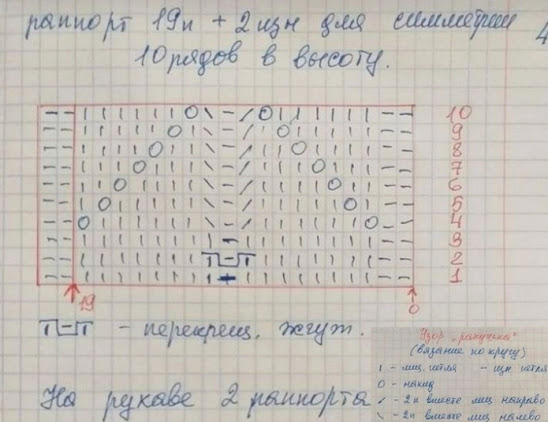 раппорт 19п + 2изн для симметрии
10 рядов в высоту.
4
10
9
8
7
6
5
4
3
2
1
19
0
- перекрещ. жгут.
На рукаве 2 раппорта
Узор "ракушка"
(вязание по кругу)
| - лиц петля - изн петля
O - накид
/ - 2п вместе лиц направо
\ - 2п вместе лиц налево